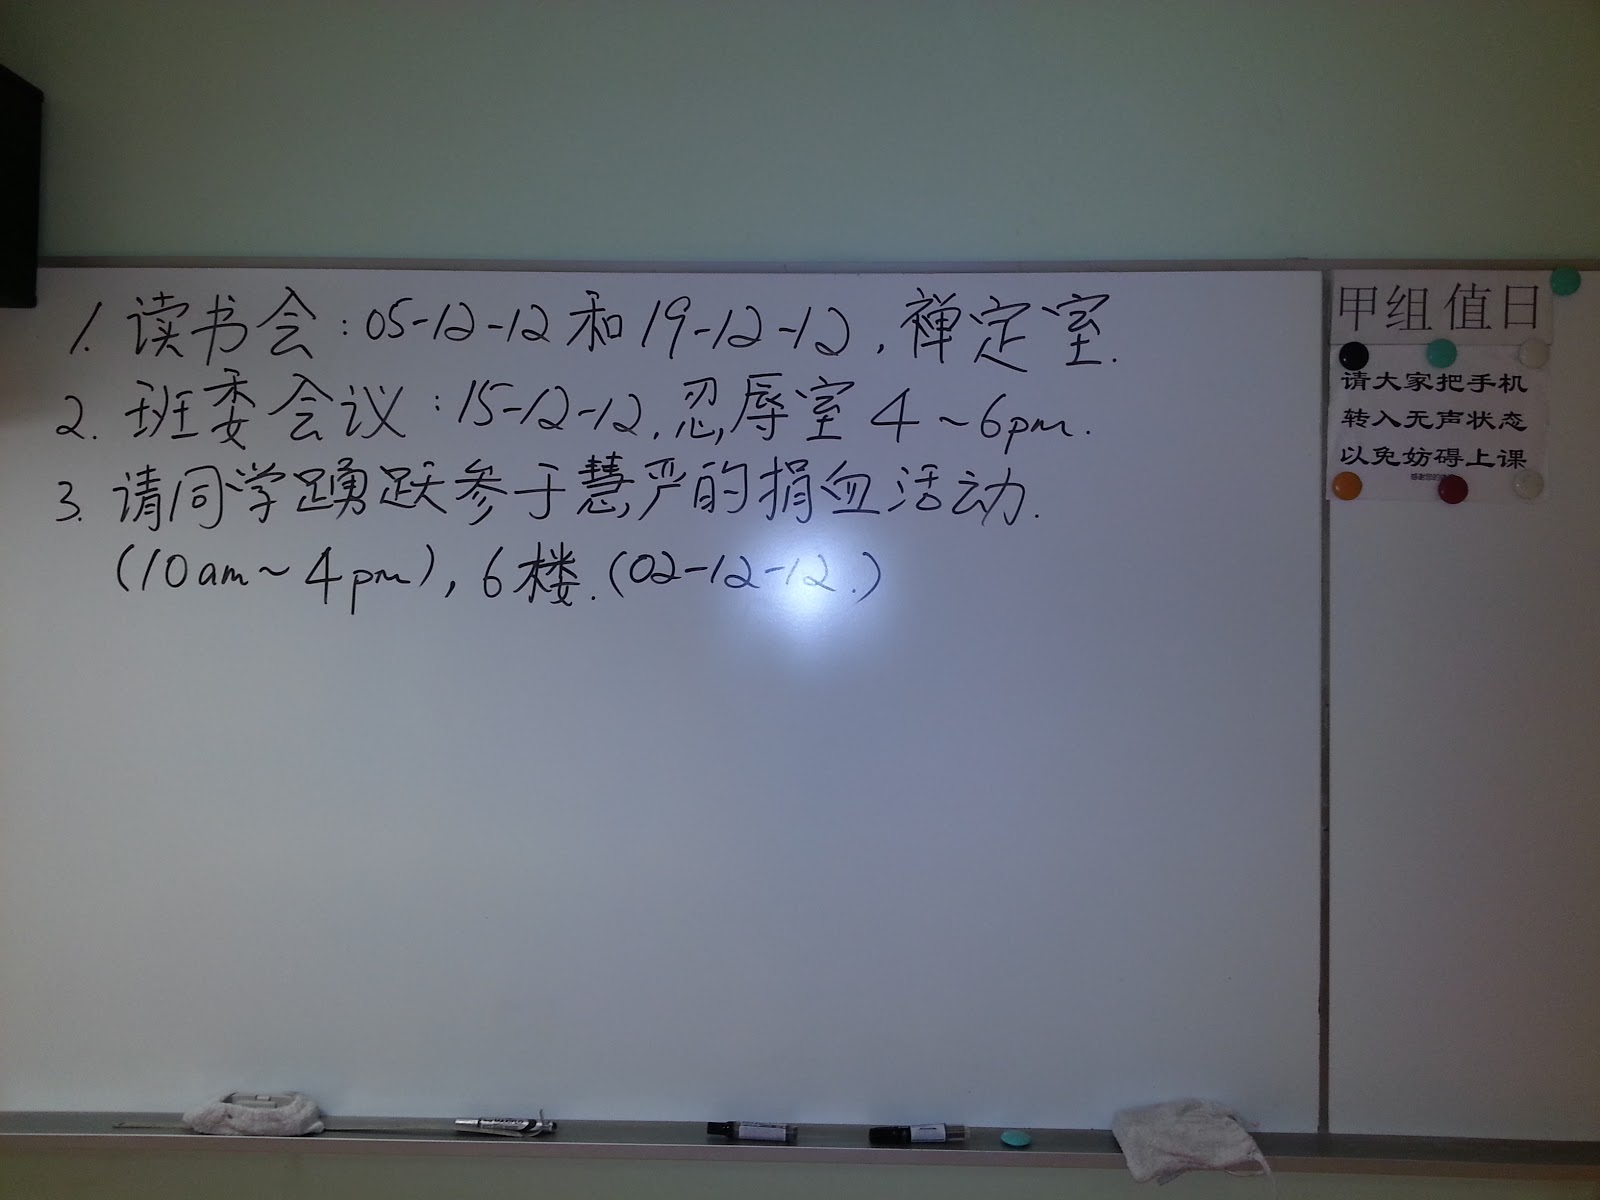 1. 读书会：05-12-12 和 19-12-12，禅定室.
2. 班委会议：15-12-12，忍辱室 4~6pm.
3. 请同学踊跃参于慧严的捐血活动.
(10am~4pm)，6楼.(02-12-12.)
甲组 值日
请大家把手机
转入无声状态
以免妨碍上课